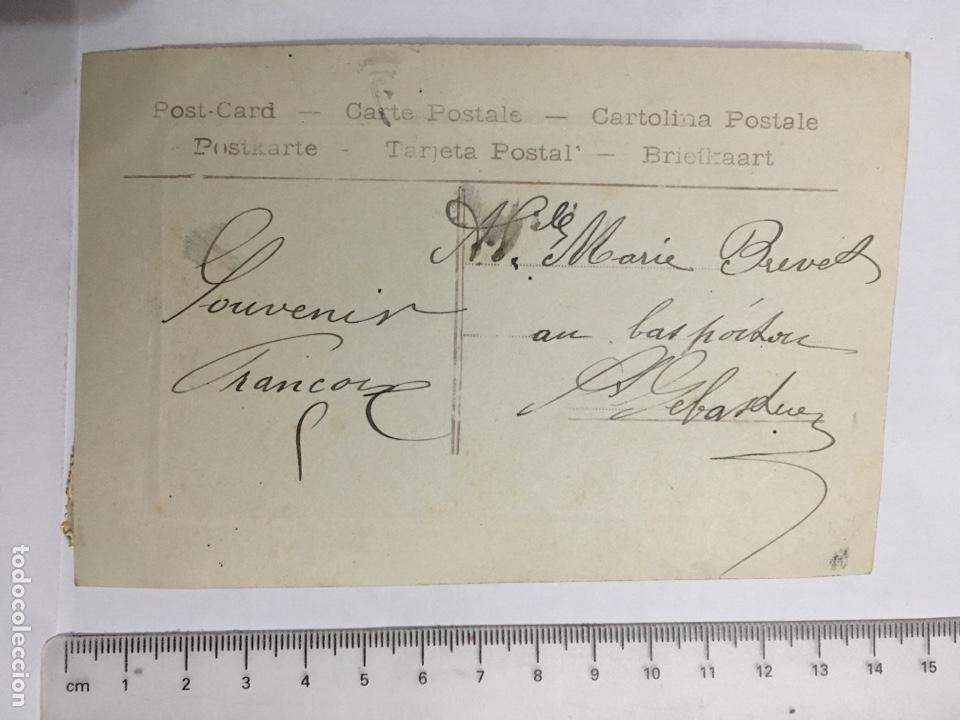 Post-Card — Carte Postale — Cartolina Postale
Postkarte - Tarjeta Postal — Briefkaart
Souvenir
Francois
Mlle Marie Brevet
au bas poitou
St Sebastien
todocoleccion
cm 1 2 3 4 5 6 7 8 9 10 11 12 13 14 15